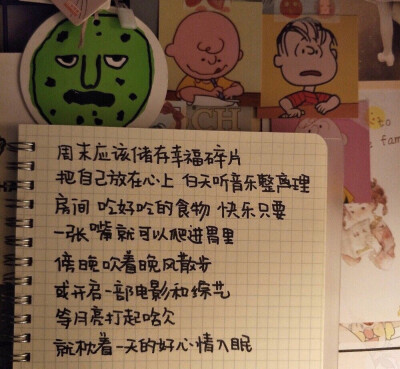 周末应该储存幸福碎片
把自己放在心上 白天听音乐整理
房间 吃好吃的食物 快乐只要
一张嘴就可以爬进胃里
傍晚吹着晚风散步
或开启一部电影和综艺
等月亮打起哈欠
就枕着一天的好心情入眠